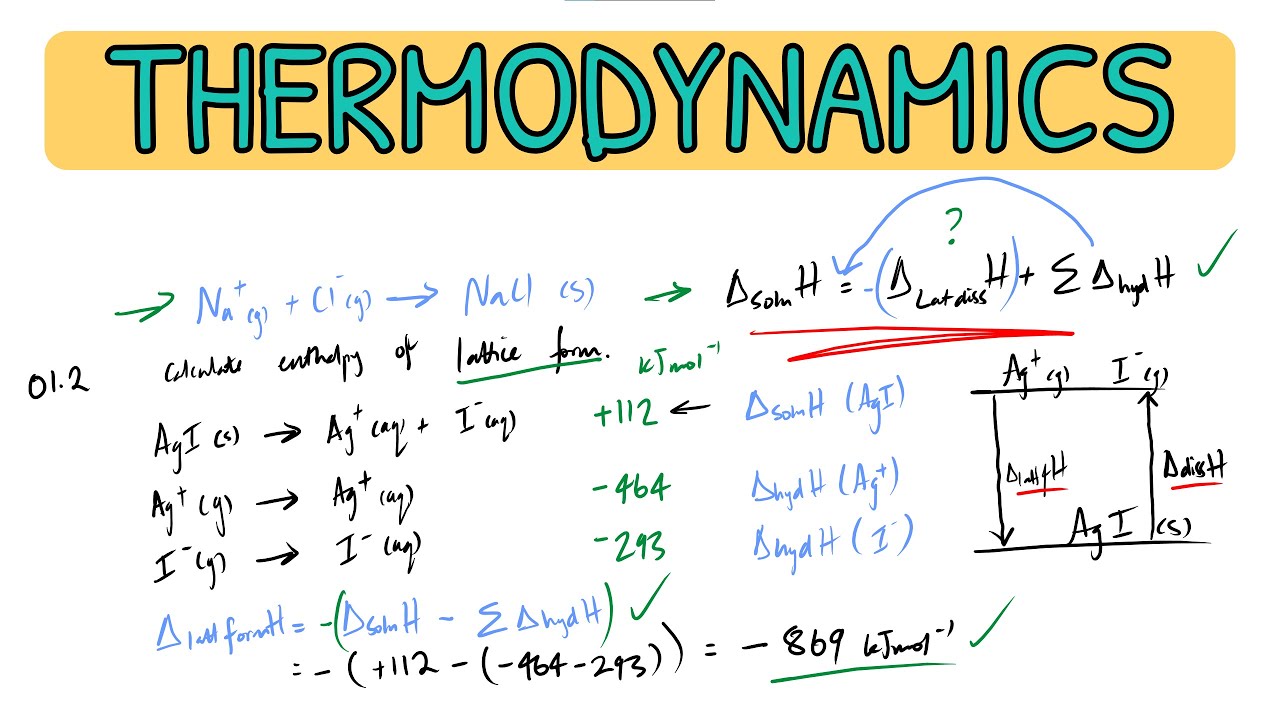 THERMODYNAMICS
→ Na⁺(g) + Cl⁻(g) → NaCl (s)
→ ΔsolnH = -(ΔLatdissH) + Σ ΔhydH ✓
?
01.2 Calculate enthalpy of lattice form. kJmol⁻¹
AgI (s) → Ag⁺(aq) + I⁻(aq) +112 ← ΔsolnH (AgI)
Ag⁺(g) → Ag⁺(aq) -464 ΔhydH (Ag⁺)
I⁻(g) → I⁻(aq) -293 ΔhydH (I⁻)
Ag⁺(g) I⁻(g)
ΔlattfH ΔdissH
AgI (s)
ΔlattformH = -(ΔsolnH - Σ ΔhydH) ✓
= -(+112 - (-464-293)) = -869 kJmol⁻¹ ✓